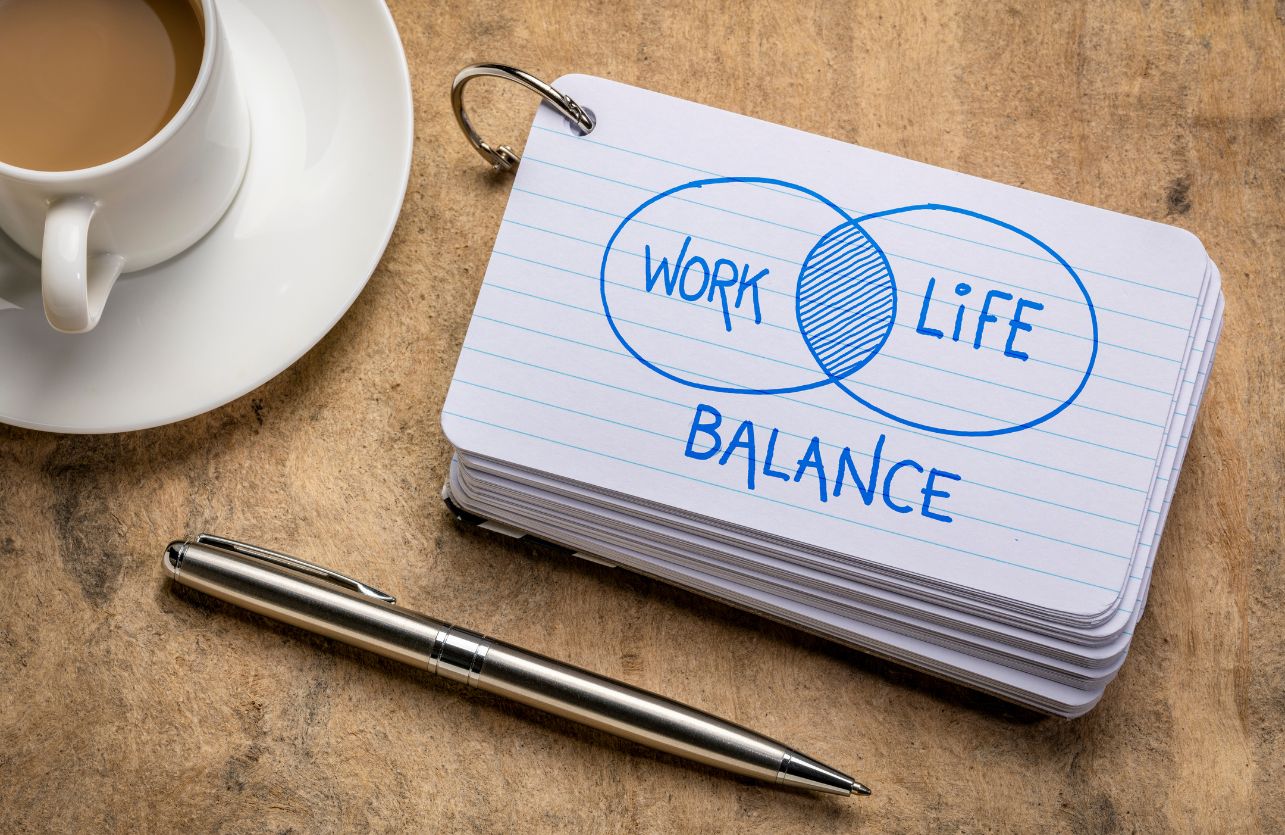 WORK LiFE
BALANCE